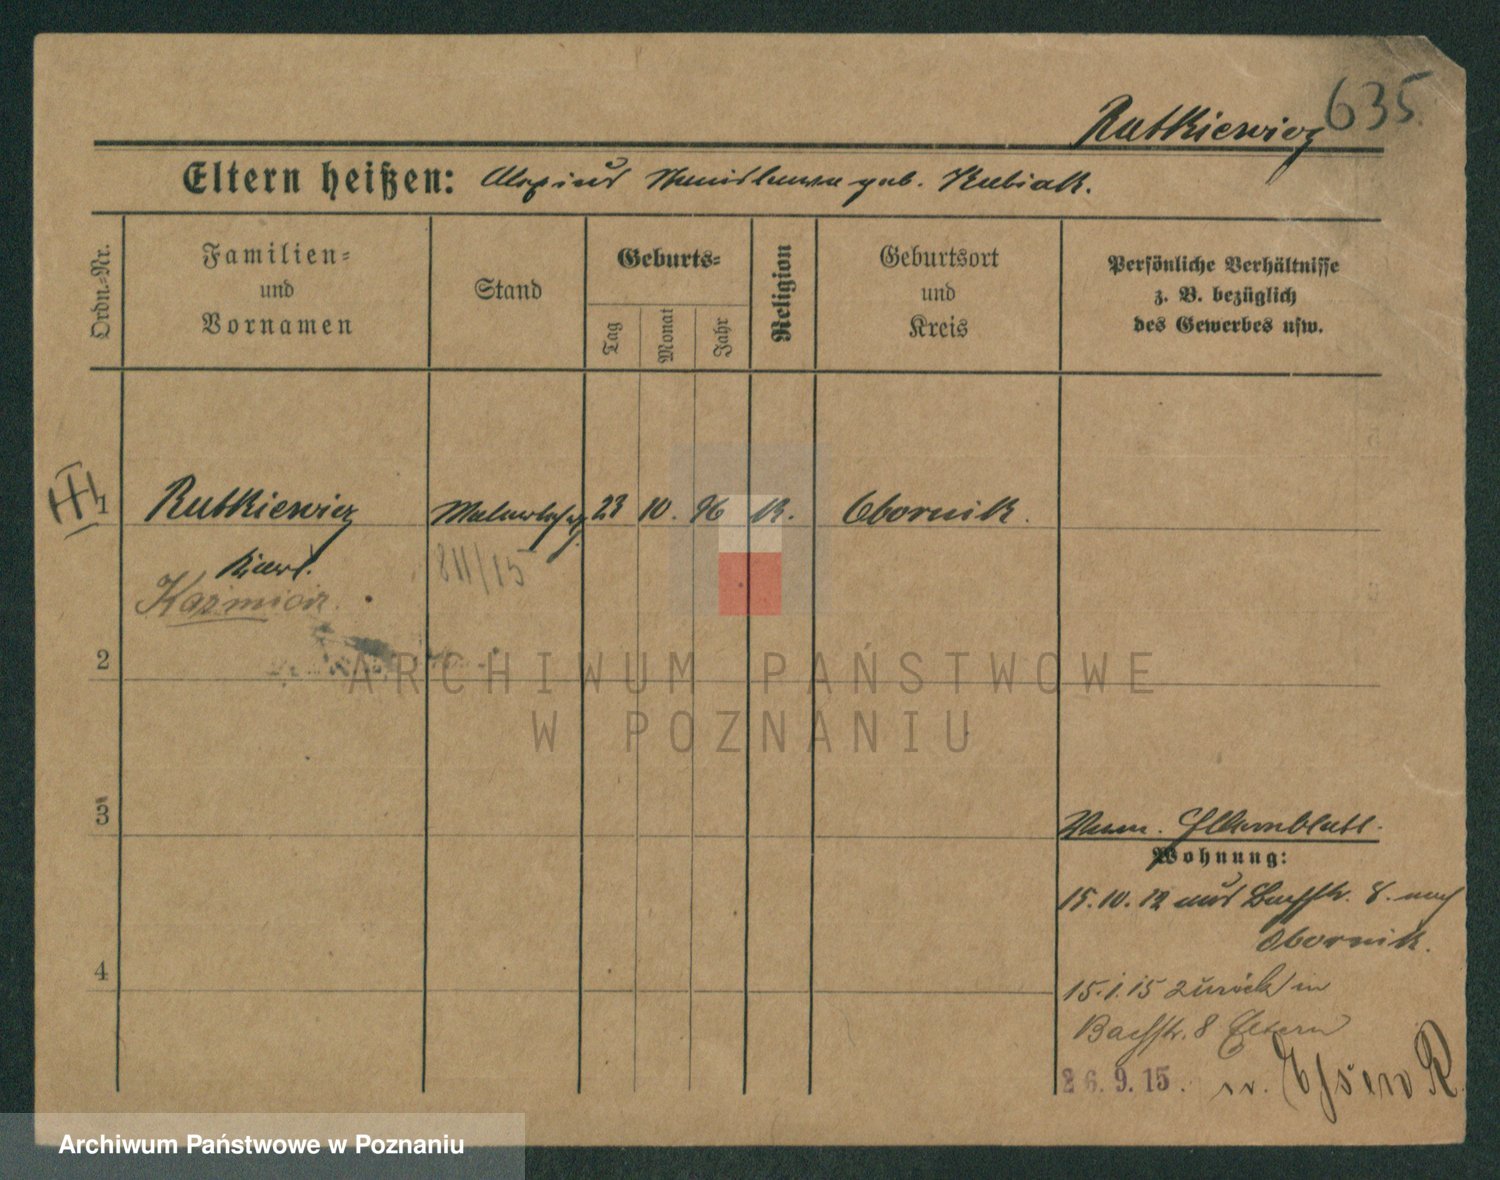 635
Rutkiewicz
Eltern heißen: Stanislawa geb. Kubiak.
Ordn.-Nr.
Familien-
und
Vornamen
Stand
Geburts-
Tag
Monat
Jahr
Religion
Geburtsort
und
Kreis
Persönliche Verhältnisse
z. B. bezüglich
des Gewerbes usw.
1 Rutkiewicz 23 10. 96 K. Obornik.
811/15
Kazmierz.
2
3
4
Elternblatt.
Wohnung:
15.10.12 aus Bachstr. 8. nach
Obornik.
15.1.15 zurück in
Bachstr. 8 Eltern
26.9.15. n. Essen R.
ARCHIWUM PAŃSTWOWE
W POZNANIU
Archiwum Państwowe w Poznaniu